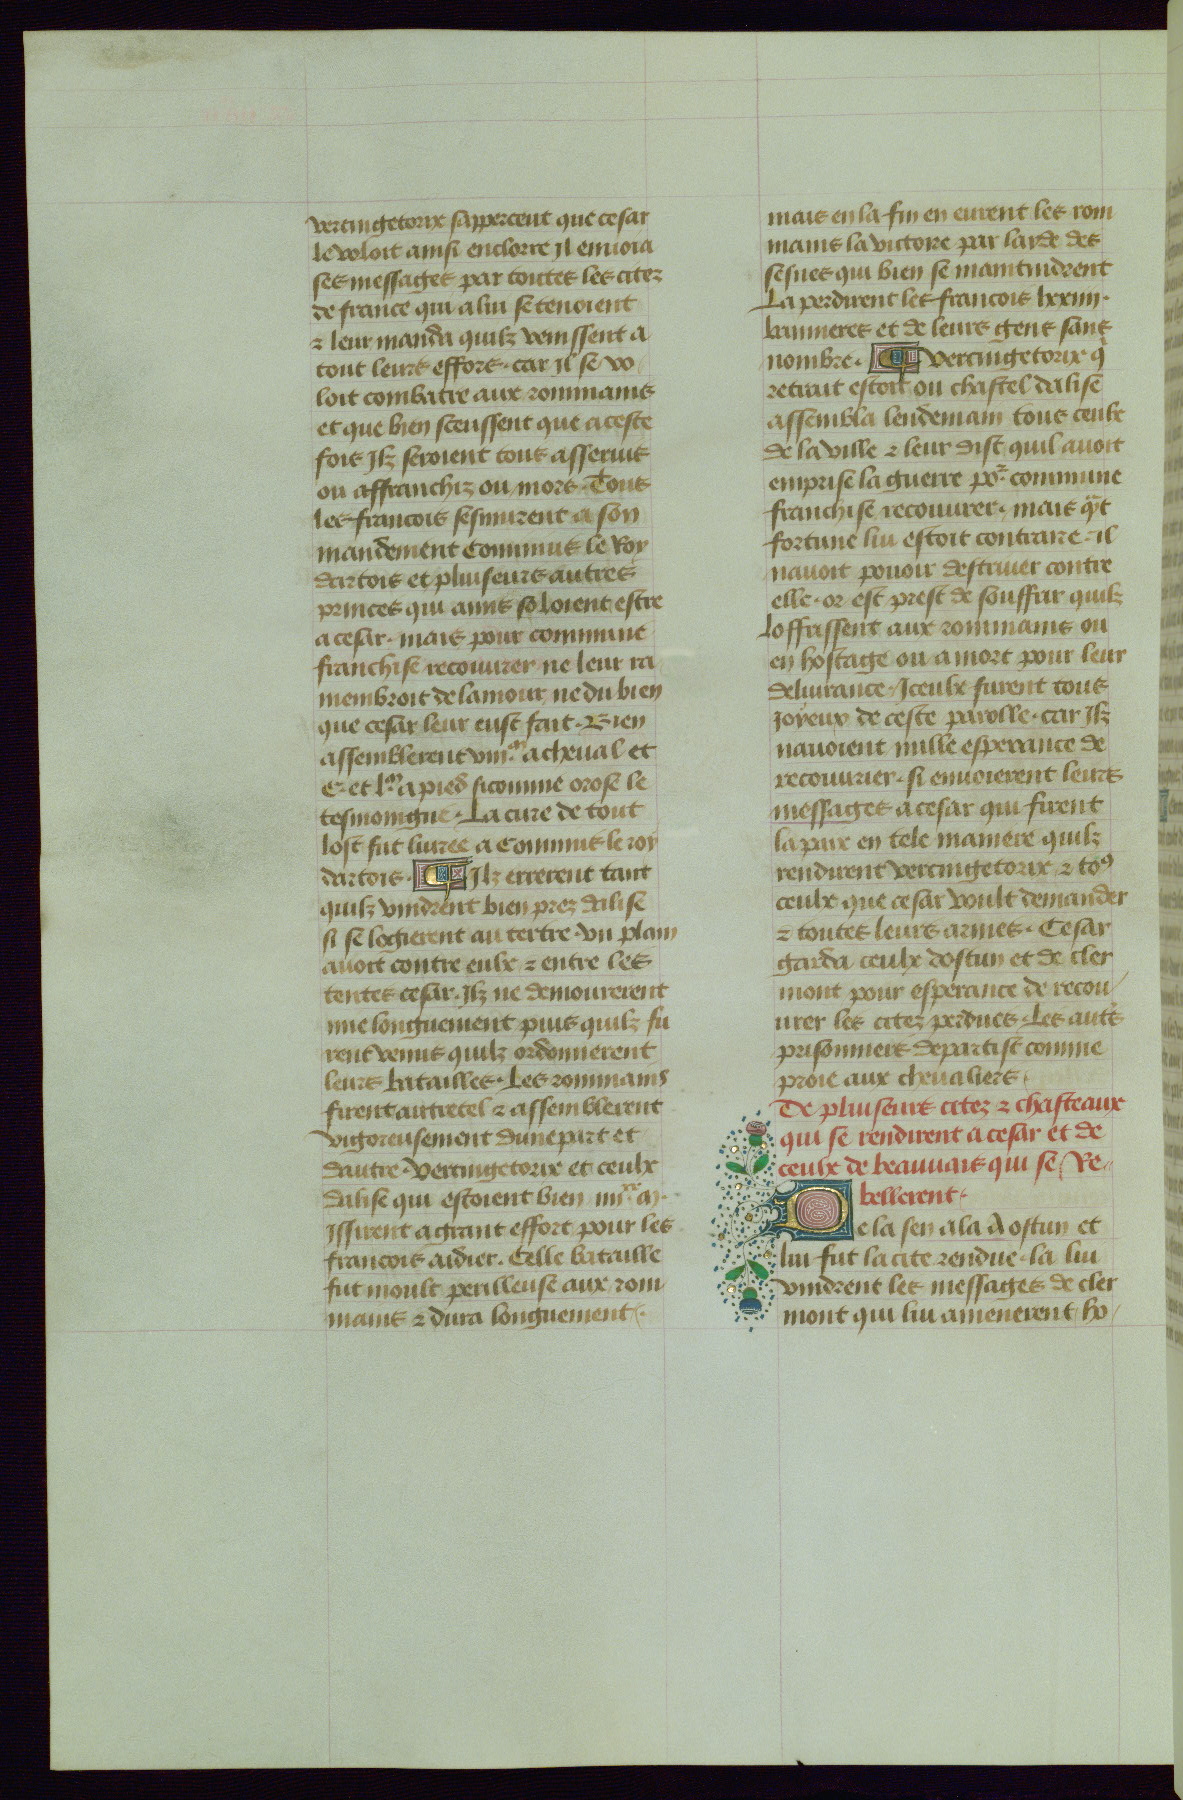 vercingetorix sappercut que cesar
le voloit ainsi enclorre Il enuoia
ses messages par toutes les citez
de france qui a lui se tenoient
⁊ leur manda quilz venissent a
tout leurs effors. car Il se vo
loit combatre aux rommains
et que bien sceussent que a ceste
fois Ilz seroient tous asseruis
ou affranchiz ou mors. Tous
les francois sesmurent a son
mandement Commus le Roy
dartois et pluiseurs autres
princes qui amis soloient estre
a cesar. mais pour commune
franchise recouurer ne leur ra
membroit de lamour ne du bien
que cesar leur eust fait. Bien
assemblerent viii.m a cheual et
C. et l.m a pied si comme orose le
tesmoingne. La cure de tout
lost fut liuree a Commus le roy
dartois. Ilz errerent tant
quilz vindrent bien prez dalise
si se logierent au tertre. Vn plain
auoit contre eulx ⁊ entre les
tentes cesar. Ilz ne demourerent
mie longuement puis quilz fu
rent venus quilz ordonnerent
leurs batailles. Les rommains
firent autretel ⁊ assemblerent
vigoreusement dune part et
dautre. Vercingetorix et ceulx
dalise qui estoient bien iiii.xx m.
Issirent a grant effort pour les
francois aidier. Celle bataille
fut moult perilleuse aux rom
mains ⁊ dura longuement.
mais en la fin en eurent les rom
mains la victoire par larde des
sesnes qui bien se maintindrent
La perdirent les francois lxxiiii.
bannieres et de leurs gens sans
nombre. Vercingetorix q̇
retrait estoit ou chastel dalise
assembla lendemain tous ceulx
de la ville ⁊ leur dist quil auoit
emprise la guerre po2 commune
franchise recouurer. mais qa̅t
fortune lui estoit contraire. il
nauoit pouoir destriuer contre
elle. or est prest de souffrir quilz
loffrissent aux rommains ou
en hostage ou a mort pour leur
deliurance. Iceulx furent tous
Joyeux de ceste parolle. car Ilz
nauoient nulle esperance de
recouurier. si enuoierent leurs
messages a cesar qui firent
la paix en tele maniere quilz
rendirent vercingetorix ⁊ toꝰ
ceulx que cesar voult demander
⁊ toutes leurs armes. Cesar
garda ceulx dostun et de cler
mont pour esperance de recou
urer les citez perdues. Les aut̾s
prisonniers departist comme
proie aux cheualiers.
De pluiseurs citez ⁊ chasteaux
qui se rendirent a cesar et de
ceulx de beauuais qui se Re
bellerent.
De la sen ala A ostun et
lui fut la cite rendue. la lui
vindrent les messages de cler
mont qui lui amenerent ho